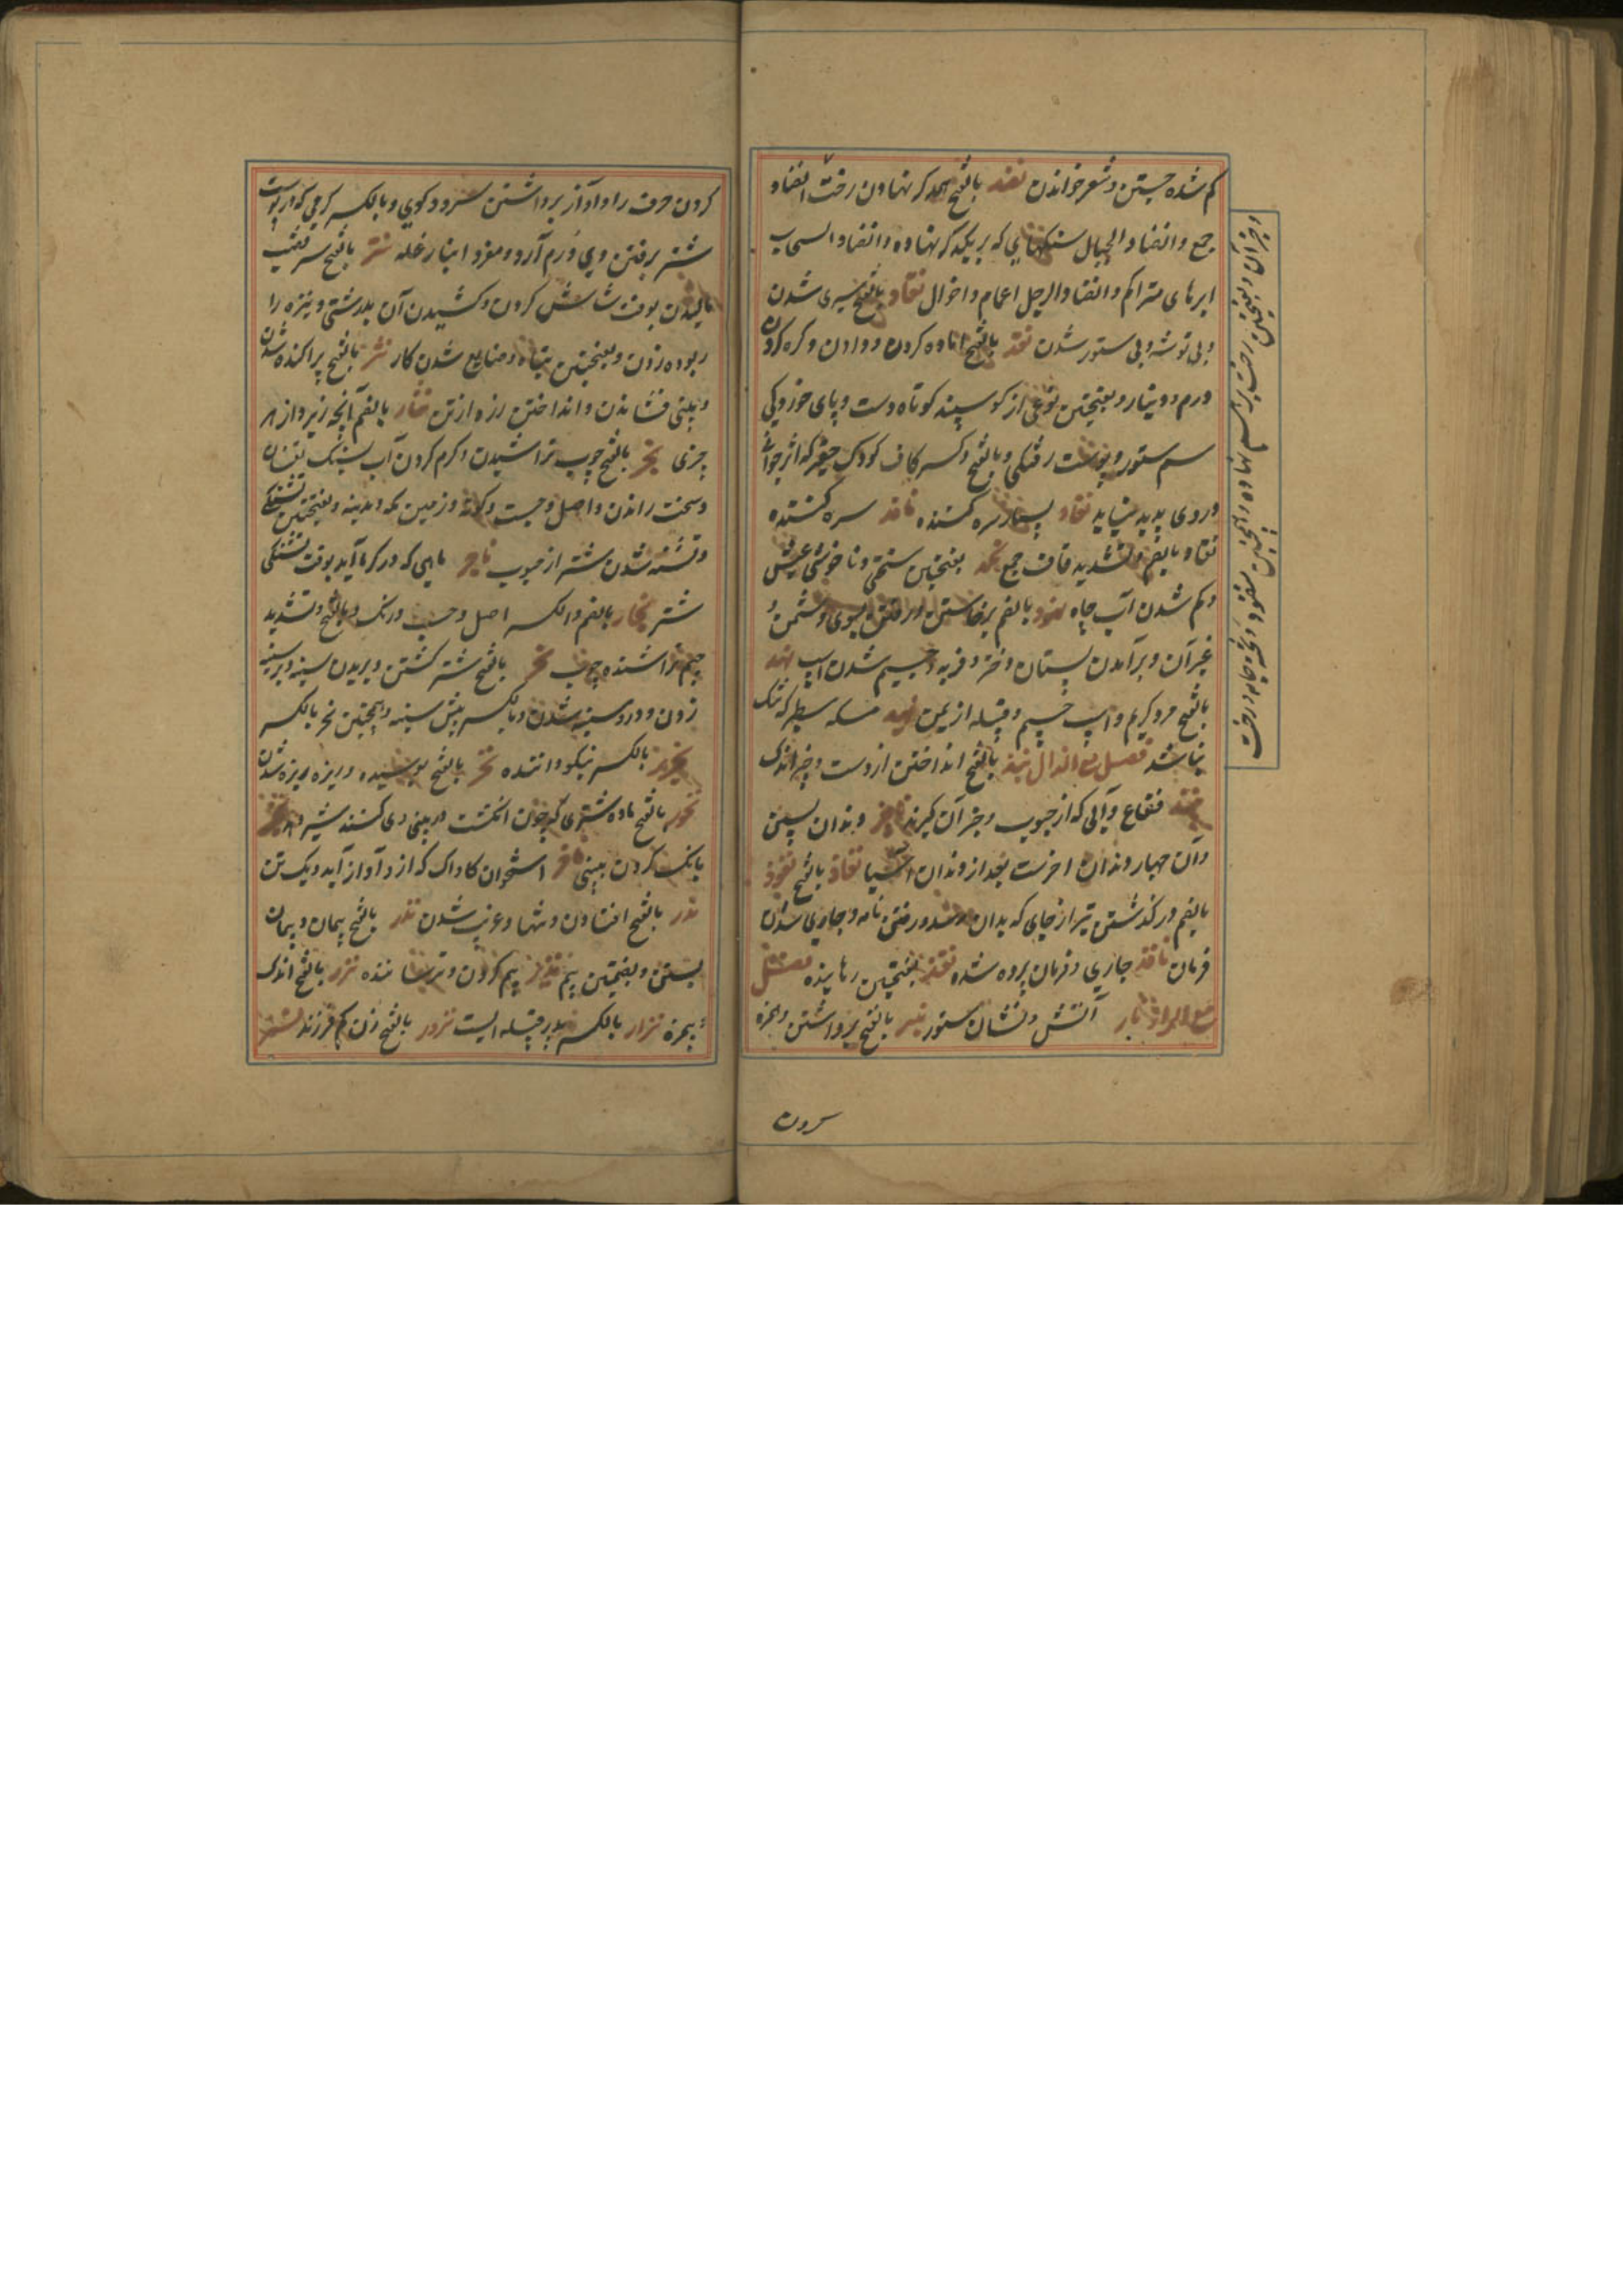 کم شده جستن و شعر خواندن نضد بالفتح بر همدکر نهادن رخت انضاد
جمع و انضاد الجبال سنکهای که بر یکدکر نهاده و انضاد السحاب
ابرهای متراکم و انضاد الرجل اعمام و اخوال نفاد بالفتح سپری شدن
و بی توشه و بی ستور شدن نقد بالفتح اماده کردن و دادن و کره کردن
درم و دینار و بفتحتین نوعی از کوسپند کوتاه دست و پای خوردکی
سم ستور و پوست رفتکی و بالفتح و کسر کاف کودک حقیر که اثر جوانی
در وی پدید نیاید نقاد بسیار سره کننده ناقد سره کننده
نقاد بالضم و تشدید قاف جمع نکد بفتحتین سختی و ناخوشی عیش
و کم شدن آب چاه نهود بالضم برخاستن و رفتن بسوی دشمن و
غیر آن و برآمدن پستان دختر و فربه و جسیم شدن اسپ نهد
بالفتح مرد کریم و اسپ جسیم و قبیله از یمن نهید مسکه سطبر که تنک
نباشد فصل مع الذال نبذ بالفتح انداختن از دست و چیز اندک
نبیذ فقاع و آبی که از حبوب و جز آن کیرند ناجذ دندان پسین
و آن چهار دندان اخرست بعد از دندان اسیا نفاذ بالفتح نفوذ
بالضم درکذشتن تیر از جای که بدان رسد و رفتن نامه و جاری شدن
فرمان نافذ جاری و فرمان برده شده نقذ بفتحتین رهانیده فصل
مع الراء نار آتش و نشان ستور نبر بالفتح برداشتن و همزه
کردن
کردن حرف را و آواز برداشتن سرود کوی و بالکسر کرمی که از پوست
شتر برفتن وی ورم آرد و مفرد انبار غله نتر بالفتح سر قضیب
مالیدن بوقت شاش کردن و کشیدن آن بدرشتی و نیزه را
ربوده زدن و بفتحتین تباه و ضایع شدن کار نثر بالفتح پراکنده شدن
و بینی فشاندن و انداختن زره از تن نثار بالضم آنچه زیر و از هر
چیزی نجر بالفتح چوب تراشیدن و کرم کردن آب بسنک تفسان
و سخت راندن و اصل و حسب و کونه و زمین مکه و مدینه و بفتحتین تشنکی
و تشنه شدن شتر از حبوب ناجر ماهی که در کرما آید بوقت تشنکی
شتر نجار بالضم و الکسر اصل و حسب و رنک و بالفتح و تشدید
جیم تراشنده چوب نحر بالفتح شتر کشتن و بریدن سینه و بر سینه
زدن و درد سینه شدن و بالکسر پیش سینه و همچنین نحر بالکسر
نحریر بالکسر نیکو داننده نخر بالفتح پوسیده و ریزه ریزه شدن
نخور بالفتح ماده شتری که چون انکشت در بینی وی کنند شیر دهد نخیر
بانک کردن بینی ناخر استخوان کاواک که از و آواز آید و یک تن
ندر بالفتح افتادن و تنها و غریب شدن نذر بالفتح پیمان و پیمان
بستن و بضمتین بیم نذیر بیم کردن و ترساننده نزر بالفتح اندک
و بیمزه نزار بالکسر پدر قبیله ایست نزور بالفتح زن کم فرزند نشر